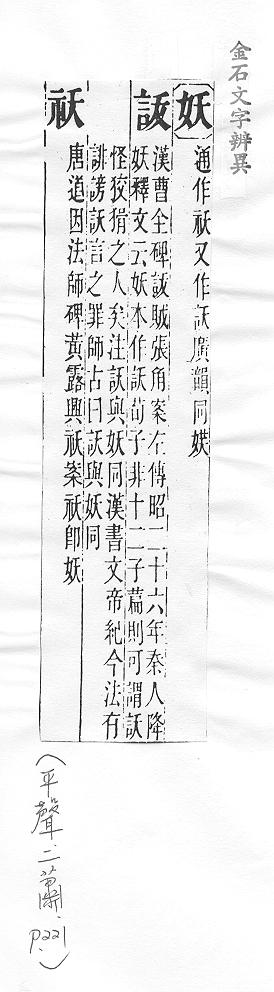 金石文字辨異
妖 通作祅又作訞廣韻同𡝩
訞 漢曹全碑訞賊張角案左傳昭二十六年秦人降
妖釋文云妖本作訞荀子非十二子篇則可謂訞
怪狡猾之人矣注訞與妖同漢書文帝紀今法有
誹謗訞言之罪師古曰訞與妖同
祅 唐道因法師碑黃露興祅案祅即妖
(平聲.二蕭.P221.)